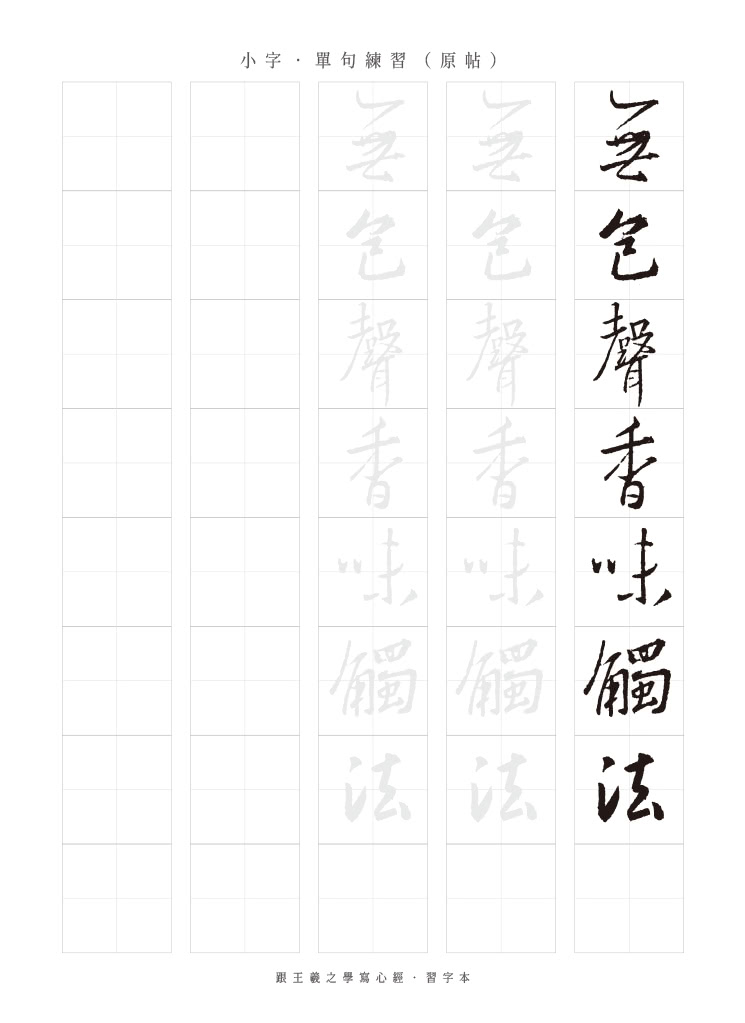 小字·單句練習（原帖）
無色聲香味觸法
無色聲香味觸法
無色聲香味觸法
跟王羲之學寫心經·習字本